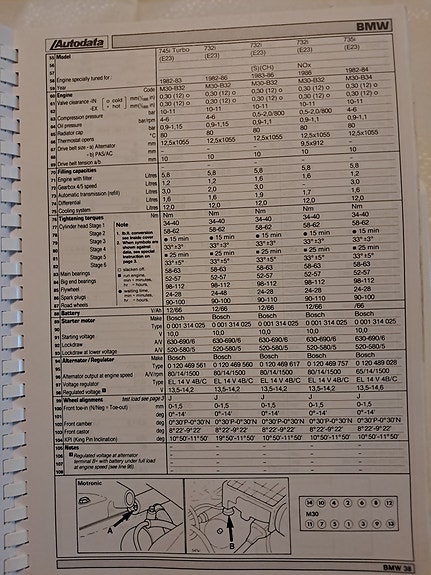 Autodata
BMW
55 Model 745i Turbo 732i 732i 732i 735i
(E23) (E23) (E23) (E23) (E23)
56
57 (S)(CH) NOx
58 Engine specially tuned for: 1982-83 1982-86 1983-86 1986 1982-84
59 Engine Code M30-B32 M30-B32 M30-B32 M30-B32 M30-B34
60 Valve clearance -IN o cold mm 0,30 (12) o 0,30 (12) o 0,30 (12) o 0,30 (12) o 0,30 (12) o
61 -EX • hot mm 0,30 (12) o 0,30 (12) o 0,30 (12) o 0,30 (12) o 0,30 (12) o
62 Compression pressure bar 10-11 10-11 10-11 10-11 10-11
63 Oil pressure bar/rpm 4-6 4-6 0,5-2,0/800 4-6 0,5-2,0/800
64 Radiator cap bar 0,9-1,15 0,9-1,15 0,9-1,1 0,9-1,1
65 Thermostat opens °C 80 80 80 80 80
66 Drive belt size - a) Alternator mm 12,5x1055 12,5x1055 12,5x1055 12,5x1055 12,5x1055
67 - b) PAS/AC mm
68 Drive belt tension a/b mm 10 10 10 10
70 Filling capacities
71 Engine with filter Litres 5,8 5,8 5,8 5,8 5,8
72 Gearbox 4/5 speed Litres 1,2 1,2 1,6 1,6 1,2
73 Automatic transmission (refill) Litres 3,0 2,0 3,0 - 3,0
74 Differential Litres 1,6 1,6 1,9 1,7 1,6
75 Cooling system Litres 12,0 12,0 12,0 12,0 12,0
76 Tightening torques Nm Nm Nm Nm Nm Nm
77 Cylinder head Stage 1 34-40 34-40 34-40 34-40 34-40
Stage 2 58-62 58-62 58-62 58-62 58-62
Stage 3 ● 15 min ● 15 min ● 15 min ● 15 min ● 15 min
Stage 4 33°±3° 33°±3° 33°±3° 33°±3° 33°±3°
Stage 5 ■ 25 min ■ 25 min ■ 25 min ■ 25 min ■ 25 min
Stage 6 33°±5° 33°±5° 33°±5° 33°±5° 33°±5°
Note
1. lb.ft. conversion see inside cover
2. When symbols are shown against data, see special instruction on page 2.
□ slacken off
■ run engine, min = minutes, hr = hours.
● waiting time, min = minutes, hr = hours.
Main bearings 58-63 58-63 58-63 58-63 58-63
84 Big end bearings 52-57 52-57 52-57 52-57 52-57
85 Flywheel 98-112 98-112 98-112 98-112 98-112
86 Spark plugs 24-28 24-28 24-28 24-28 24-28
87 Road wheels 90-100 90-110 90-110 90-110 90-100
88 Battery V/Ah 12/66 12/66 12/66 12/66 /66
89 Starter motor Make Bosch Bosch Bosch Bosch Bosch
90 Type 0 001 314 025 0 001 314 025 0 001 314 025 0 001 314 025 0 001 314 025
91 Starting voltage V 10,0 10,0 10,0 10,0 10,0
92 Lockdraw A/V 630-690/6 630-690/6 630-690/6 630-690/6 630-690/6
93 Lockdraw at lower voltage A/V 520-580/5 520-580/5 520-580/5 520-580/5 520-580/5
94 Alternator / Regulator Make Bosch Bosch Bosch Bosch Bosch
95 Type 0 120 469 561 0 120 469 560 0 120 469 617 0 120 469 757 0 120 489 028
96 Alternator output at engine speed A/V/rpm 80/14/1500 80/14/1500 80/14/1500 80/14/1500 65/14/1500
97 Voltage regulator Type EL 14 V 4B/C EL 14 V 4B/C EL 14 V 4B/C EL 14 V 4B/C EL 14 V 4B/C
98 Regulated voltage V 13,5-14,2 13,5-14,2 13,5-14,2 13,5-14,2 13,5-14,6
99 Wheel alignment test load see page 3 J J J J J
100 Front toe-in (N/Neg = Toe-out) mm 0-1,5 0-1,5 0-1,5 0-1,5 0-1,5
101 0°-14' 0°-14' 0°-14' 0°-14' 0°-14'
102 Front camber 0°30'P-0°30'N 0°30'P-0°30'N 0°30'P-0°30'N 0°30'P-0°30'N 0°30'P-0°30'N
103 Front castor 8°22'-9°22' 8°22'-9°22' 8°22'-9°22' 8°22'-9°22' 8°22'-9°22'
104 KPI (King Pin Inclination) 10°50'-11°50' 19°50'-11°50' 10°50'-11°50' 10°50'-11°50' 10°50'-11°50'
105 Notes
106 Regulated voltage at alternator
107 terminal B+ with battery under full load
108 at engine speed (see line 96).
109
Motronic
A
B
14 10 4 2 6 8 12
M30
11 7 5 1 3 9 13
BMW 38